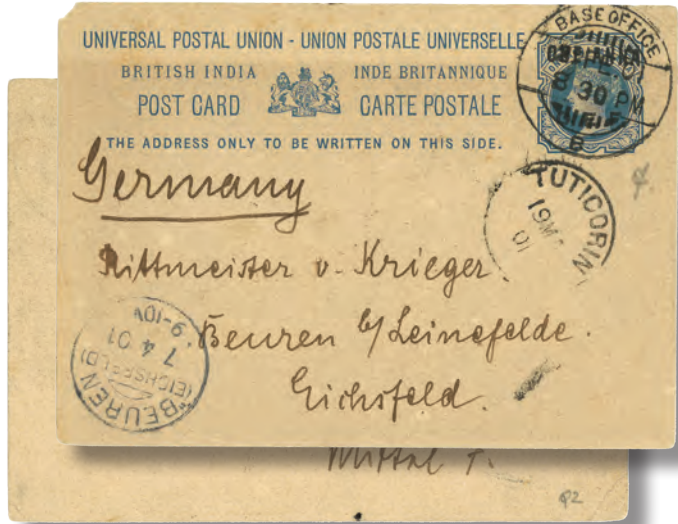 UNIVERSAL POSTAL UNION - UNION POSTALE UNIVERSELLE
BRITISH INDIA INDE BRITANNIQUE
POST CARD CARTE POSTALE
THE ADDRESS ONLY TO BE WRITTEN ON THIS SIDE.
BASE OFFICE
8 30 PM
B
TUTICORIN
19 M
01
Germany
Rittmeister v. Krieger.
Beuren b/Leinefelde.
Eichsfeld.
BEUREN
(EICHSFELD)
7 4 01
9-10V